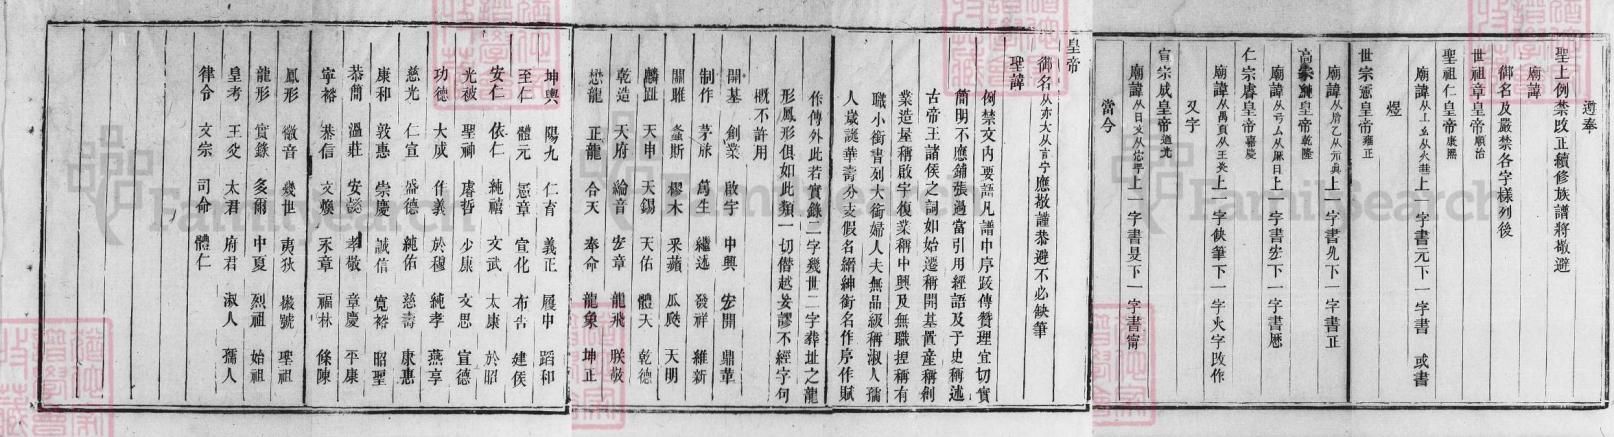 遵奉
聖上例禁改正續修族譜將敬避
廟諱
御名及嚴禁各字樣列後
世祖章皇帝順治
聖祖仁皇帝康熙
廟諱从上玄从火華上一字書元下一字書 或書
煜
世宗憲皇帝雍正
廟諱从胤乙从示真上一字書九下一字書正
高宗純皇帝乾隆
廟諱从弓厶从厤日上一字書宏下一字書厯
仁宗睿皇帝嘉慶
廟諱从禺頁从王炎上一字缺筆下一字火字改作
又字
宣宗成皇帝道光
廟諱从日文从心寧上一字書旻下一字書甯
當今
皇帝
御名从亦大从言宁應敬謹恭避不必缺筆
聖諱
例禁文內要語凡譜中序跋傳贊理宜切實
簡明不應鋪張過當引用經語及于史稱述
古帝王諸侯之詞如始遷稱開基置產稱創
業造屋稱啟宇復業稱中興及無職捏稱有
職小銜書列大銜婦人夫無品級稱淑人孺
人歲誕華壽分支假名縉紳銜名作序作賦
作傳外此若實錄二字幾世二字葬址之龍
形鳳形俱如此類一切僭越妄謬不經字句
概不許用
開基 創業 啟宇 中興 宏開 鼎革
制作 茅旅 萬生 繼述 發祥 維新
關雎 螽斯 樛木 采蘋 瓜瓞 天明
麟趾 天申 天錫 天佑 體天 乾德
乾造 天府 綸音 宏章 龍飛 朕敬
懋龍 正龍 合天 奉命 龍象 坤正
坤輿 陽九 仁育 義正 履中 蹈和
至仁 體元 憲章 宣化 布告 建侯
安仁 依仁 純禧 文武 太康 於昭
光被 聖神 睿哲 少康 文思 宣德
功德 大成 作義 於穆 純孝 燕享
慈光 仁宣 盛德 純佑 慈壽 康惠
康和 敦惠 崇慶 誠信 寬裕 昭聖
恭簡 溫莊 安懿 孝敬 章慶 平康
寧裕 恭信 文煥 禾章 福林 條陳
鳳形 徽音 幾世 夷狄 徽號 聖祖
龍形 實錄 多爾 中夏 烈祖 始祖
皇考 王父 太君 府君 淑人 孺人
律令 文宗 司命 體仁
FamilySearch
FamilySearch
FamilySearch